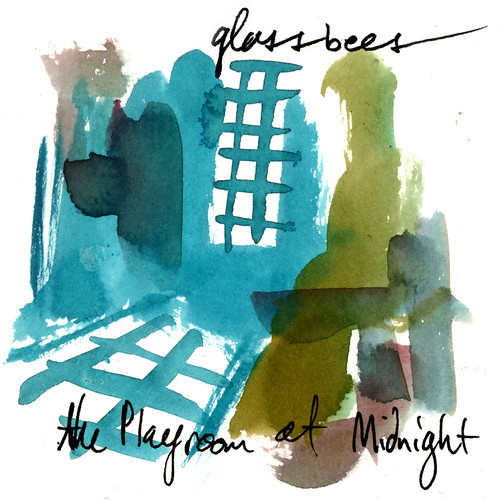 glassbees
the Playroom at Midnight